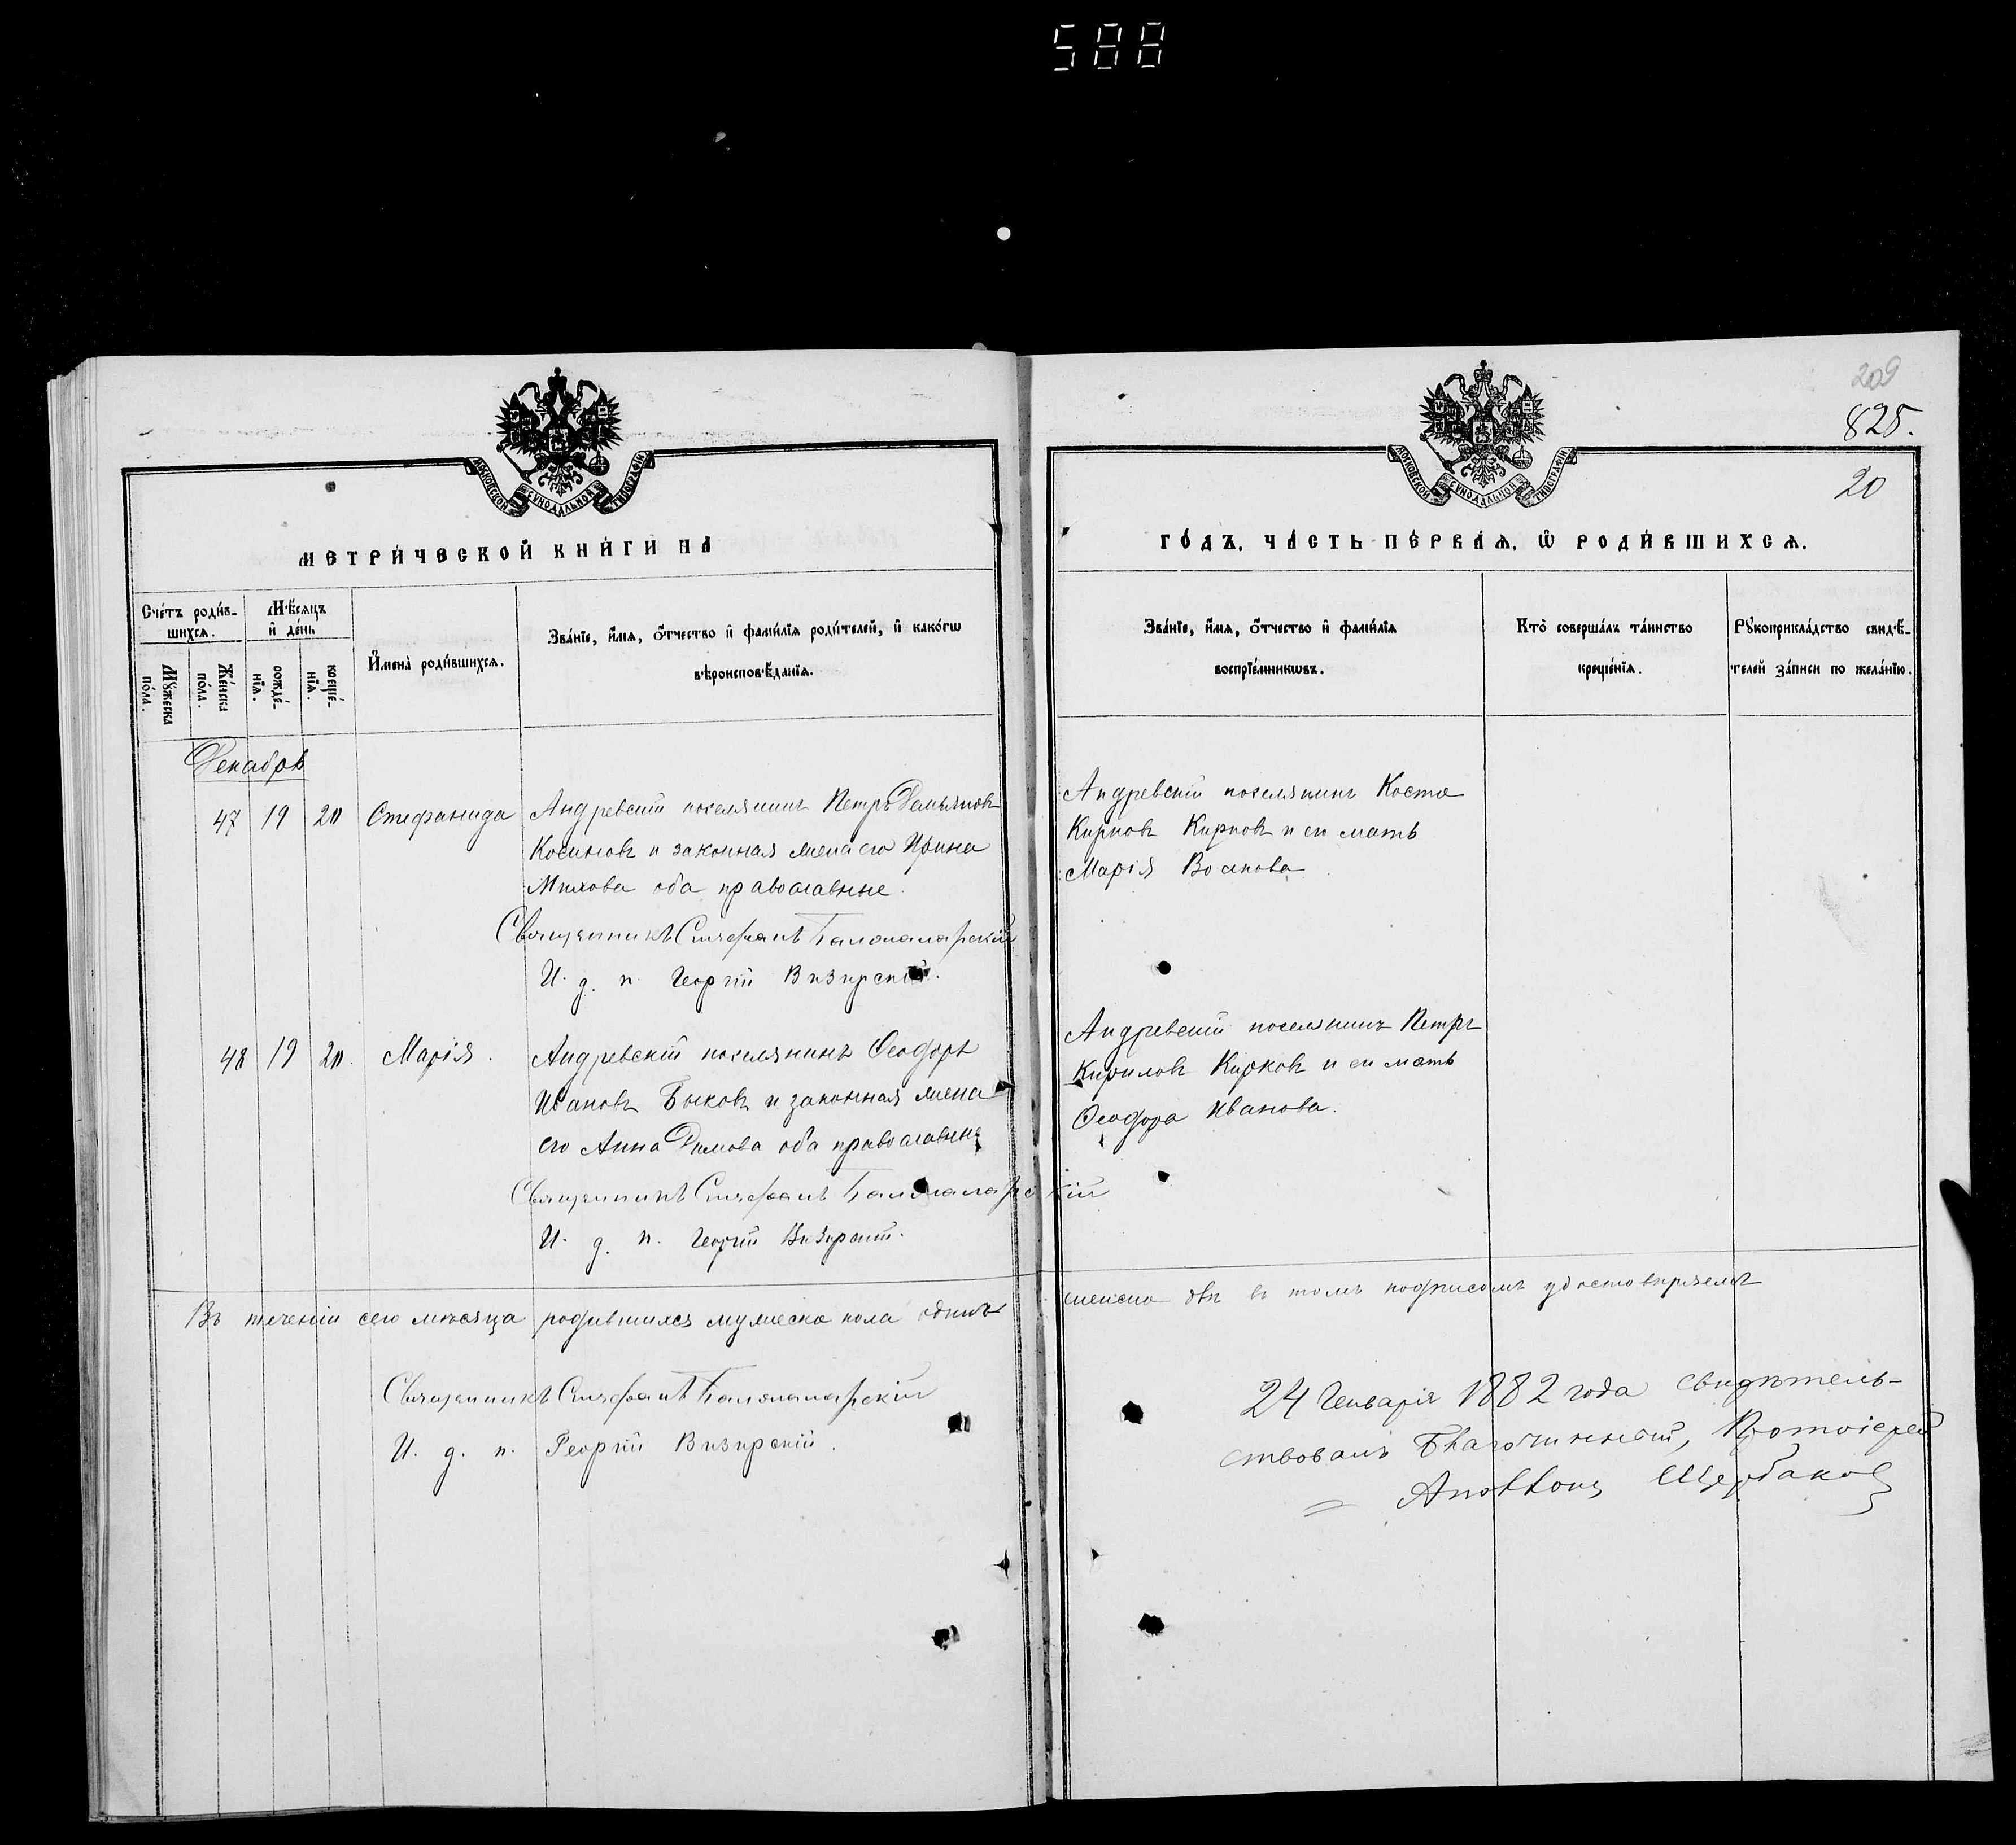 588
209
825.
20
МОСКОВСКОЙ СѴНОДАЛЬНОЙ ТИПОГРАФІИ
МОСКОВСКОЙ СѴНОДАЛЬНОЙ ТИПОГРАФІИ
МЕТРИ́ЧЕСКОЙ КНИ́ГИ НА
ГО́ДЪ, ЧА́СТЬ ПЕ́РВАѦ, Ѡ РОДИ́ВШИХСѦ.
Сче́тъ роди́в-
шихсѧ.
Мꙋ́жеска
по́ла.
Же́нска
по́ла.
Мѣ́сѧцъ
и҆ де́нь
рожде́-
нїѧ.
креще́-
нїѧ.
И҆мена̀ роди́вшихсѧ.
Зва́нїе, и҆́мѧ, ѻ҆́тчество и҆ фамі́лїѧ роди́телей, и҆ какѡ́гѡ
вѣроисповѣ́данїѧ.
Зва́нїе, и҆́мѧ, ѻ҆́тчество и҆ фамі́лїѧ
воспрїе́мникѡвъ.
Кто̀ соверша́лъ та́инство
креще́нїѧ.
Рꙋкоприкла́дство свидѣ́-
телей за́писи по жела́нїю.
Декабрь
47 19 20 Стефанида Андревскій поселянинъ Петръ Демьяновъ
Косиновъ и законная жена его Ирина
Милова оба православные.
Священникъ Стефанъ Баломаларскій
И. д. п. Георгій Визирскій.
Андревскій поселянинъ Коста
Кирковъ Кирковъ и ея мать
Марія
48 19 20. Марія. Андревскій поселянинъ Ѳеодоръ
Ивановъ Быковъ и законная жена
его Анна Димова оба православные
Священникъ Стефанъ Баломаларскій
И. д. п. Георгій Визирскій.
Андревскій поселянинъ Петръ
Кириловъ Кирковъ и ея мать
Ѳеодора Иванова.
Въ теченіи сего мѣсяца родившихся мужеска пола одинъ женска двѣ въ томъ подписомъ удостовѣряемъ
Священникъ Стефанъ Баломаларскій
И. д. п. Георгій Визирскій.
24 Генваріа 1882 года свидѣтель-
ствовалъ Благочинный, Протоіерей
Аполлонъ Щербаковъ